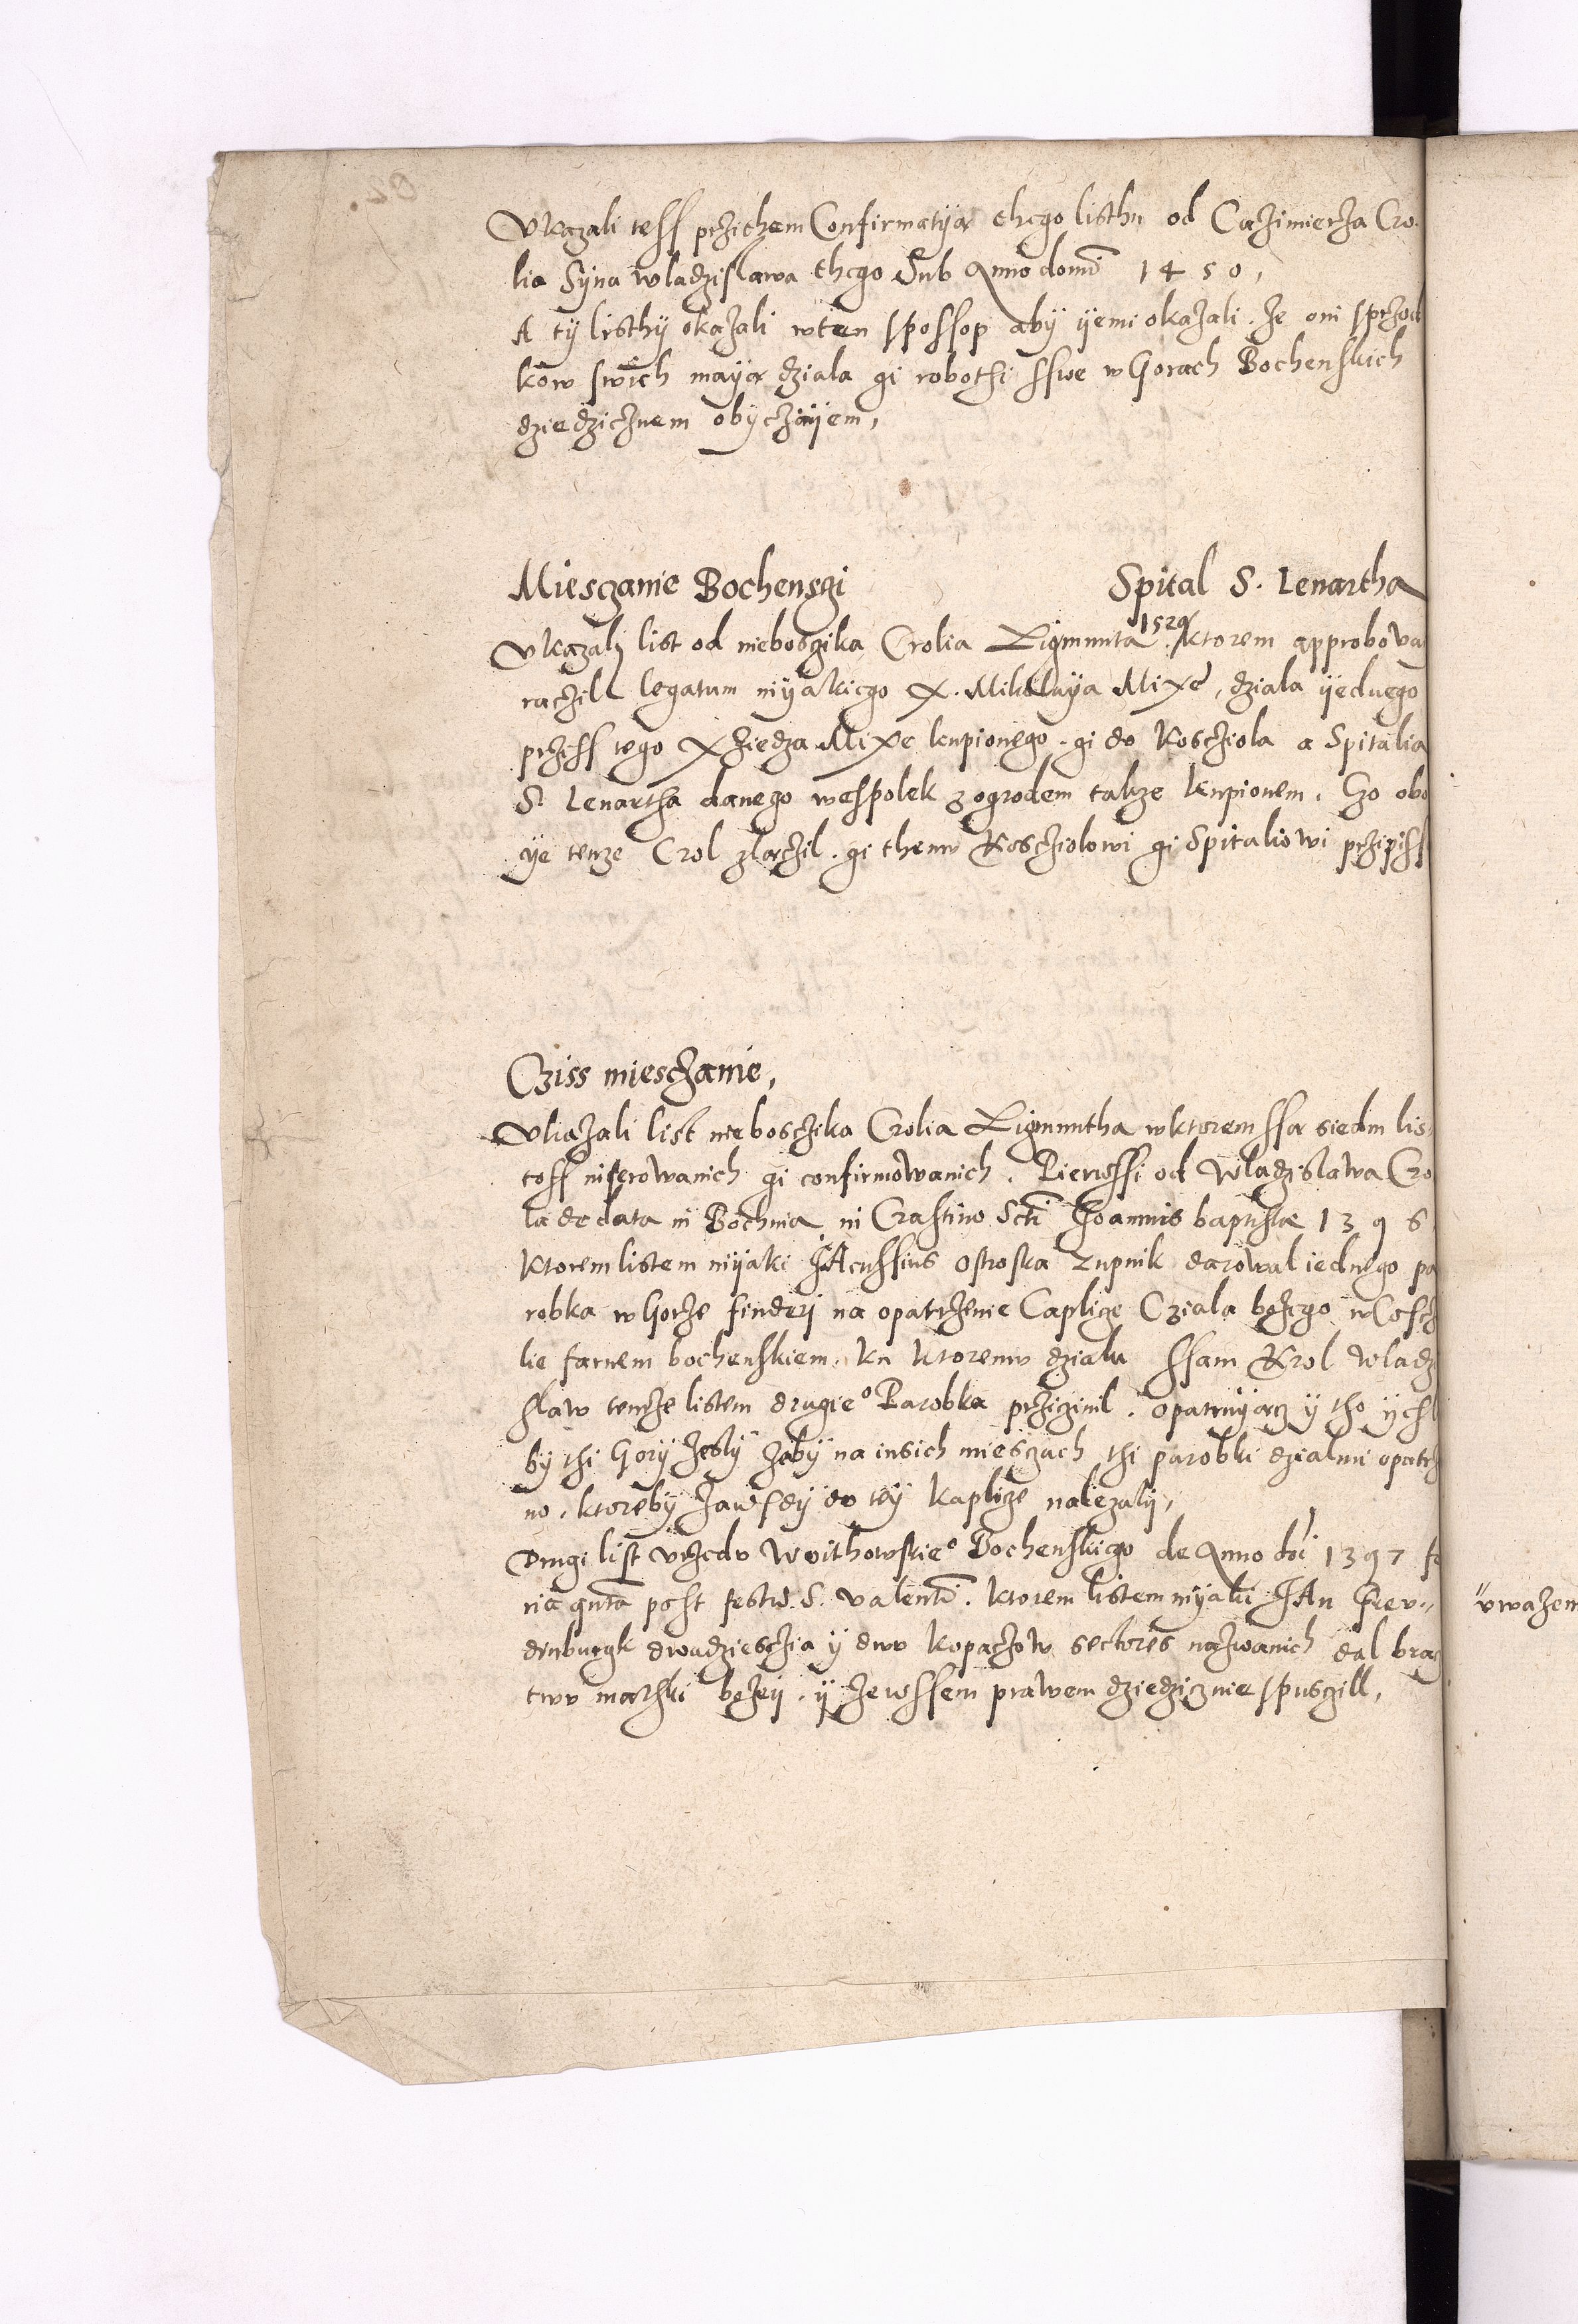 Vkazali tess przithem Confirmatiją thego listhu od Cazimierza Cro-
lia Syna wladzislawa thego Sub Anno domi 1450,
A ty listhy okazali wten spossop aby yemi okazali. ze oni sprzod
kow swich mayą dziala gi robothi sswe w Gorach Bochenskich
dziedzicznem obyczayem,
Miesczanie Bochensgi
Spital S. Lenartha
Vkazaly list od niebosgika Crolia Zigmunta 1529 ktorem approbova
raczill legatum niyakiego X. Mikolaya Mixe, dziala yednego
przess tego Xziedza Mixe kupionego. gi do Kosciola a Spitalia
S. Lenartha danego wespolek z ogrodem takze kupionem. Czo obo
ye tenze Crol zlaczil. gi themu Kosciolowi gi Spitaliowi przipiss
Cziss miesczanie,
Vkazali list nieboszika Crolia Zigmuntha w ktorem ssą siedm lis-
toff inserowanich gi confirmowanich. Pierwssi od Wladzislawa Cro
la de data in Bochnia in Crastino Scti Joannis baptistæ 1396
Ktorem listem niyaki JAcussius Ostroska zupnik darowal iednego pa
robka w Gorze finderj na opatrzenie Caplicze Cziala bozego w Cosczi
lie farnem bochenskiem. Ku ktoremu dzialu ssam Krol Wladz
slaw temze listem drugieo Parobka prziczinil. opatruyącz y tho ychl
by thi Gory zesly zaby na insich miesczach thi parobki dzialmi opatrz
no. ktoreby zawsdy do tey kaplicze nalezaly,
Drugi list vrzedu Woithowskieo Bochenskiego de Anno doi 1397 fe
ria qnta post festu S. valenti. Ktorem listem niyaki JAn Frev-
dinburgk dwadziesczia y dwu kopaczow sectores nazwanich dal brac
twu matki bozey. y ze wssem prawem dziedzicznie spusczill,
"vwazem